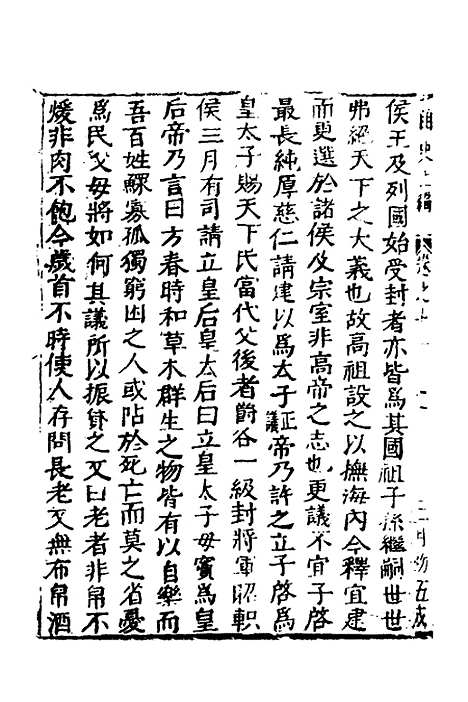 史上編　卷之十一
侯王及列國始受封者亦皆爲其國祖子孫繼嗣世世
弗絕天下之大義也故高祖設之以撫海内今釋宜建
而更選於諸侯及宗室非高帝之志也更議不宜子啓
最長純厚慈仁請建以爲太子正議帝乃許之立子啓爲
皇太子賜天下民當代父後者爵各一級封將軍昭軹
侯三月有司請立皇后皇太后曰立皇太子母竇爲皇
后帝乃言曰方春時和草木群生之物皆有以自樂而
吾百姓鰥寡孤獨窮困之人或阽於死亡而莫之省憂
爲民父母將如何其議所以振貸之又曰老者非帛不
煖非肉不飽今歲首不時使人存問長老又無布帛酒